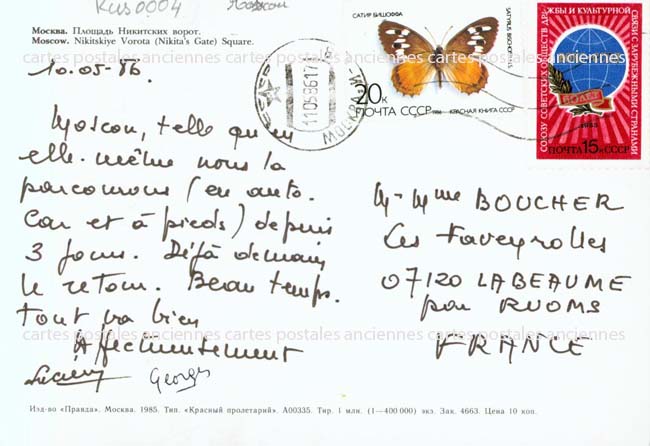 Rus0004
Moscou
Москва. Площадь Никитских ворот.
Moscow. Nikitskiye Vorota (Nikita's Gate) Square.
10.05-86.
САТИР БИШОФФА
SATYRUS BISCHOFFII
20к
ПОЧТА СССР 1986 КРАСНАЯ КНИГА СССР
СОЮЗУ СОВЕТСКИХ ОБЩЕСТВ ДРУЖБЫ И КУЛЬТУРНОЙ СВЯЗИ С ЗАРУБЕЖНЫМИ СТРАНАМИ
60 ЛЕТ
1985
ПОЧТА 15к СССР
СССР
11058617
МОСКВА
cartes postales anciennes cartes postales anciennes cartes postales anciennes cartes postales anciennes
Moscou, telle qu'en
elle-même nous la
parcourons (en auto-
car et à pieds) depuis
3 jours. Déjà demain
le retour. Beau temps.
tout va bien
Affectueusement
Georges
M- Mme BOUCHER
Les Faveyrolles
07120 LABEAUME
par RUOMS
FRANCE
cartes postales anciennes cartes postales anciennes cartes postales anciennes cartes postales anciennes
Изд-во «Правда». Москва. 1985. Тип. «Красный пролетарий». А00335. Тир. 1 млн. (1—400 000) экз. Зак. 4663. Цена 10 коп.